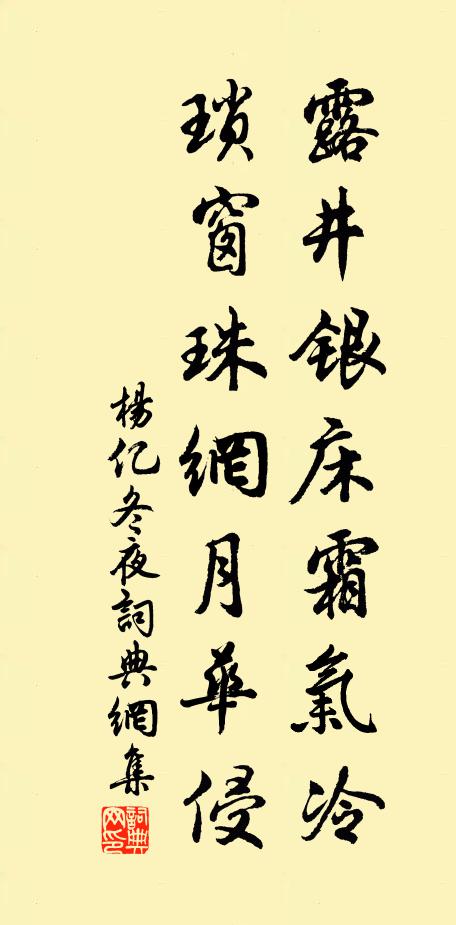 露井银床霜氣冷
瑣窗珠網月華侵
楊亿冬夜詞典網集
詞典網印